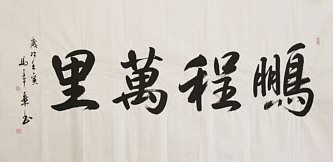 鵬程萬里
歲次壬寅